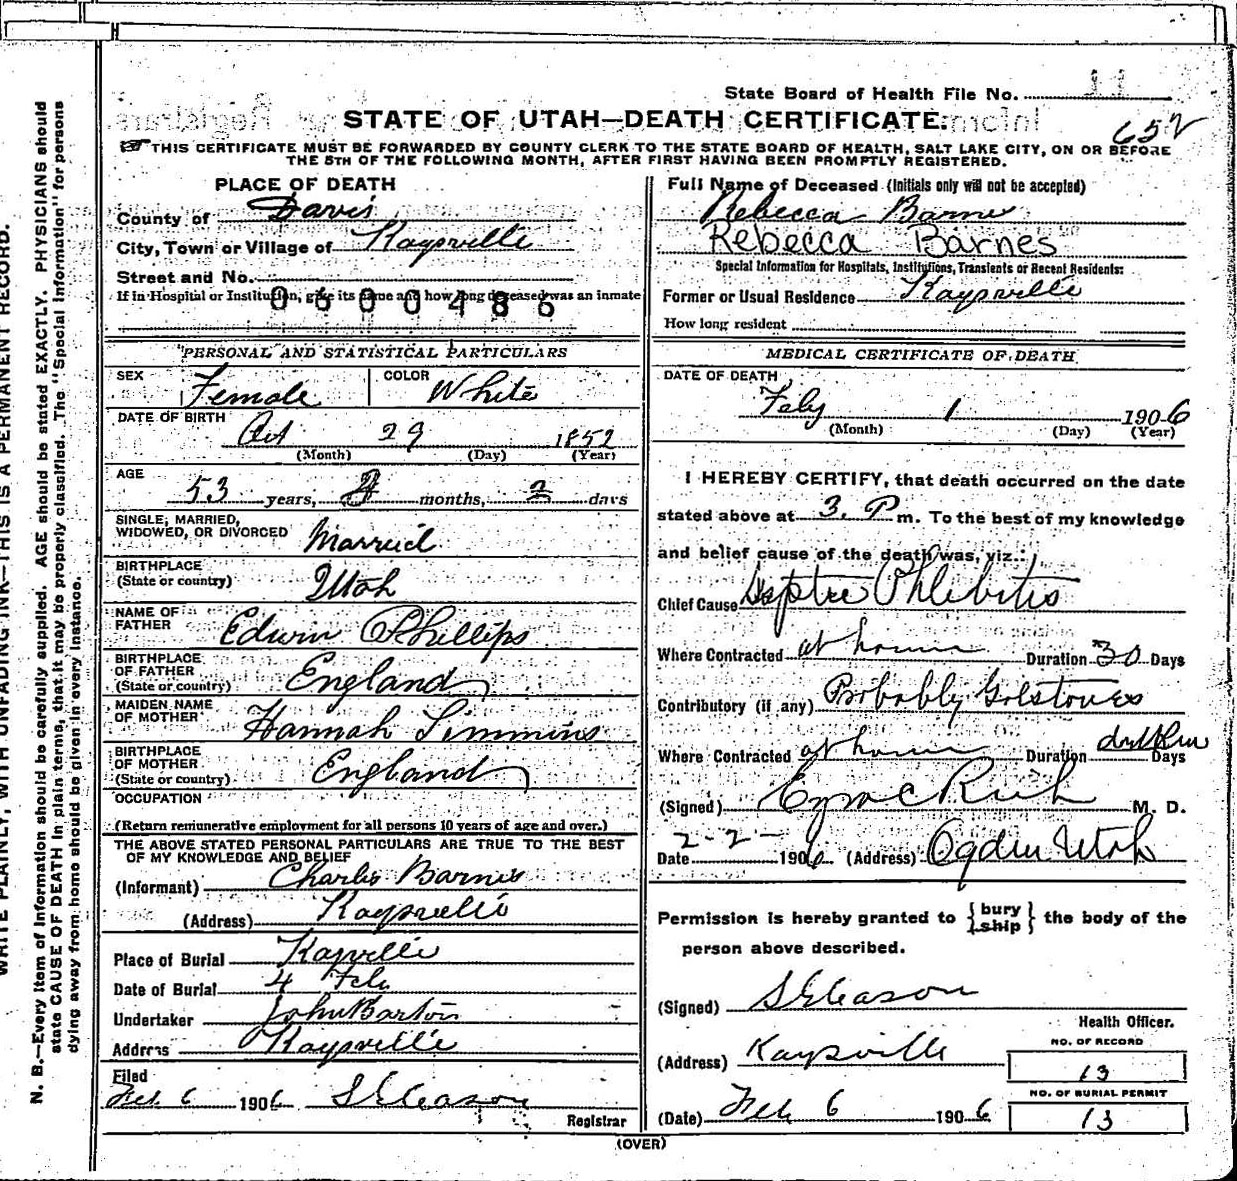 State Board of Health File No. 11
STATE OF UTAH—DEATH CERTIFICATE.
652
THIS CERTIFICATE MUST BE FORWARDED BY COUNTY CLERK TO THE STATE BOARD OF HEALTH, SALT LAKE CITY, ON OR BEFORE
THE 5TH OF THE FOLLOWING MONTH, AFTER FIRST HAVING BEEN PROMPTLY REGISTERED.
PLACE OF DEATH
County of Davis
City, Town or Village of Kaysville
Street and No.
If in Hospital or Institution, give its name and how long deceased was an inmate
0600486
PERSONAL AND STATISTICAL PARTICULARS
SEX Female COLOR White
DATE OF BIRTH Oct 29 1852
(Month) (Day) (Year)
AGE
53 years, months, 2 days
SINGLE, MARRIED,
WIDOWED, OR DIVORCED Married
BIRTHPLACE
(State or country) Utah
NAME OF
FATHER Edwin Phillips
BIRTHPLACE
OF FATHER
(State or country) England
MAIDEN NAME
OF MOTHER Hannah Simmins
BIRTHPLACE
OF MOTHER
(State or country) England
OCCUPATION
(Return remunerative employment for all persons 10 years of age and over.)
THE ABOVE STATED PERSONAL PARTICULARS ARE TRUE TO THE BEST
OF MY KNOWLEDGE AND BELIEF
(Informant) Charles Barnes
(Address) Kaysville
Place of Burial Kaysville
Date of Burial 4 Feb
Undertaker John Barton
Address Kaysville
Filed
Feb 6 1906 S E Gleason
Registrar
Full Name of Deceased (Initials only will not be accepted)
Rebecca Barnes
Rebecca Barnes
Special Information for Hospitals, Institutions, Transients or Recent Residents:
Former or Usual Residence Kaysville
How long resident
MEDICAL CERTIFICATE OF DEATH
DATE OF DEATH
Feby 1 1906
(Month) (Day) (Year)
I HEREBY CERTIFY, that death occurred on the date
stated above at 3. P m. To the best of my knowledge
and belief cause of the death was, viz.:
Chief Cause Phlebitis
Where Contracted at home Duration 30 Days
Contributory (if any) Probably Golstones
Where Contracted at home Duration Days
(Signed) Ezra C Rich M. D.
Date 2-2- 1906 (Address) Ogden Utah
Permission is hereby granted to {bury
ship} the body of the
person above described.
(Signed) S E Gleason
Health Officer.
(Address) Kaysville
NO. OF RECORD
13
NO. OF BURIAL PERMIT
13
(Date) Feb 6 1906
(OVER)
WRITE PLAINLY, WITH UNFADING INK—THIS IS A PERMANENT RECORD.
N. B.—Every item of information should be carefully supplied. AGE should be stated EXACTLY. PHYSICIANS should
state CAUSE OF DEATH in plain terms, that it may be properly classified. The "Special Information" for persons
dying away from home should be given in every instance.